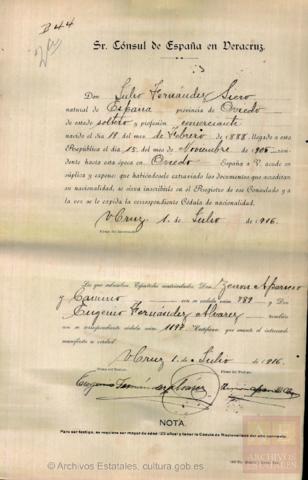 D 44
Sr. Cónsul de España en Veracruz.
Don Julio Fernández Siero
natural de España provincia de Oviedo
de estado soltero y profesión comerciante
nacido el día 18 del mes de Febrero de 1888. llegado a esta
República el día 15 del mes de Noviembre de 1905
hasta esta época en Oviedo España a V. acude en
súplica y expone: que habiéndosele extraviado los documentos que acreditan
su nacionalidad, se sirva inscribirle en el Registro de ese Consulado y a
la vez se le expida la correspondiente Cédula de nacionalidad.
V Cruz 1. de Julio de 1916.
Firma del Interesado.
Los que subscriben Españoles matriculados Don Zenon Aparicio
y Camino con su cédula núm. 789 y Don
Eugenio Fernández Alvarez también
con su correspondiente cédula núm. 1197 Certifican que cuanto el interesado
manifiesta es verdad.
V Cruz 1. de Julio de 1916
Firma del Testigo. Firma del Testigo.
Eugenio Fernández Alvarez
NOTA
Para ser testigo, se requiere ser mayor de edad (23 años) y tener la Cédula de Nacionalidad del año corriente.
© Archivos Estatales, cultura.gob.es